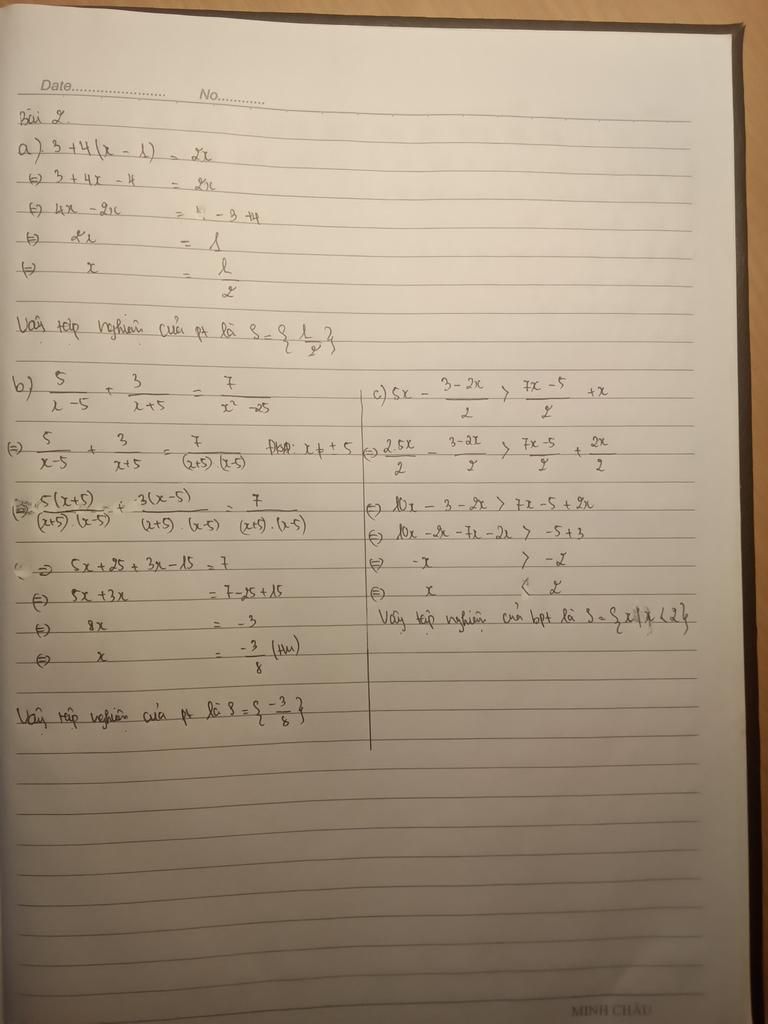 Date......................... No............
Bài 2.
a) 3 + 4(x - 1) = 2x
⇔ 3 + 4x - 4 = 2x
⇔ 4x - 2x = - 3 + 4
⇔ 2x = 1
⇔ x = 1/2
Vậy tập nghiệm của pt là S = {1/2}
b) 5/(x-5) + 3/(x+5) = 7/(x² - 25)
⇔ 5/(x-5) + 3/(x+5) = 7/((x+5).(x-5)) x ≠ ± 5
⇔ 5(x+5)/((x+5).(x-5)) + 3(x-5)/((x+5).(x-5)) = 7/((x+5).(x-5))
⇒ 5x + 25 + 3x - 15 = 7
⇔ 5x + 3x = 7 - 25 + 15
⇔ 8x = -3
⇔ x = -3/8 (tm)
Vậy tập nghiệm của pt là S = {-3/8}
c) 5x - (3-2x)/2 > (7x-5)/2 + x
⇔ 2.5x/2 - (3-2x)/2 > (7x-5)/2 + 2x/2
⇔ 10x - 3 - 2x > 7x - 5 + 2x
⇔ 10x - 2x - 7x - 2x > -5 + 3
⇔ -x > -2
⇔ x < 2
Vậy tập nghiệm của bpt là S = {x | x < 2}
MINH CHÂU